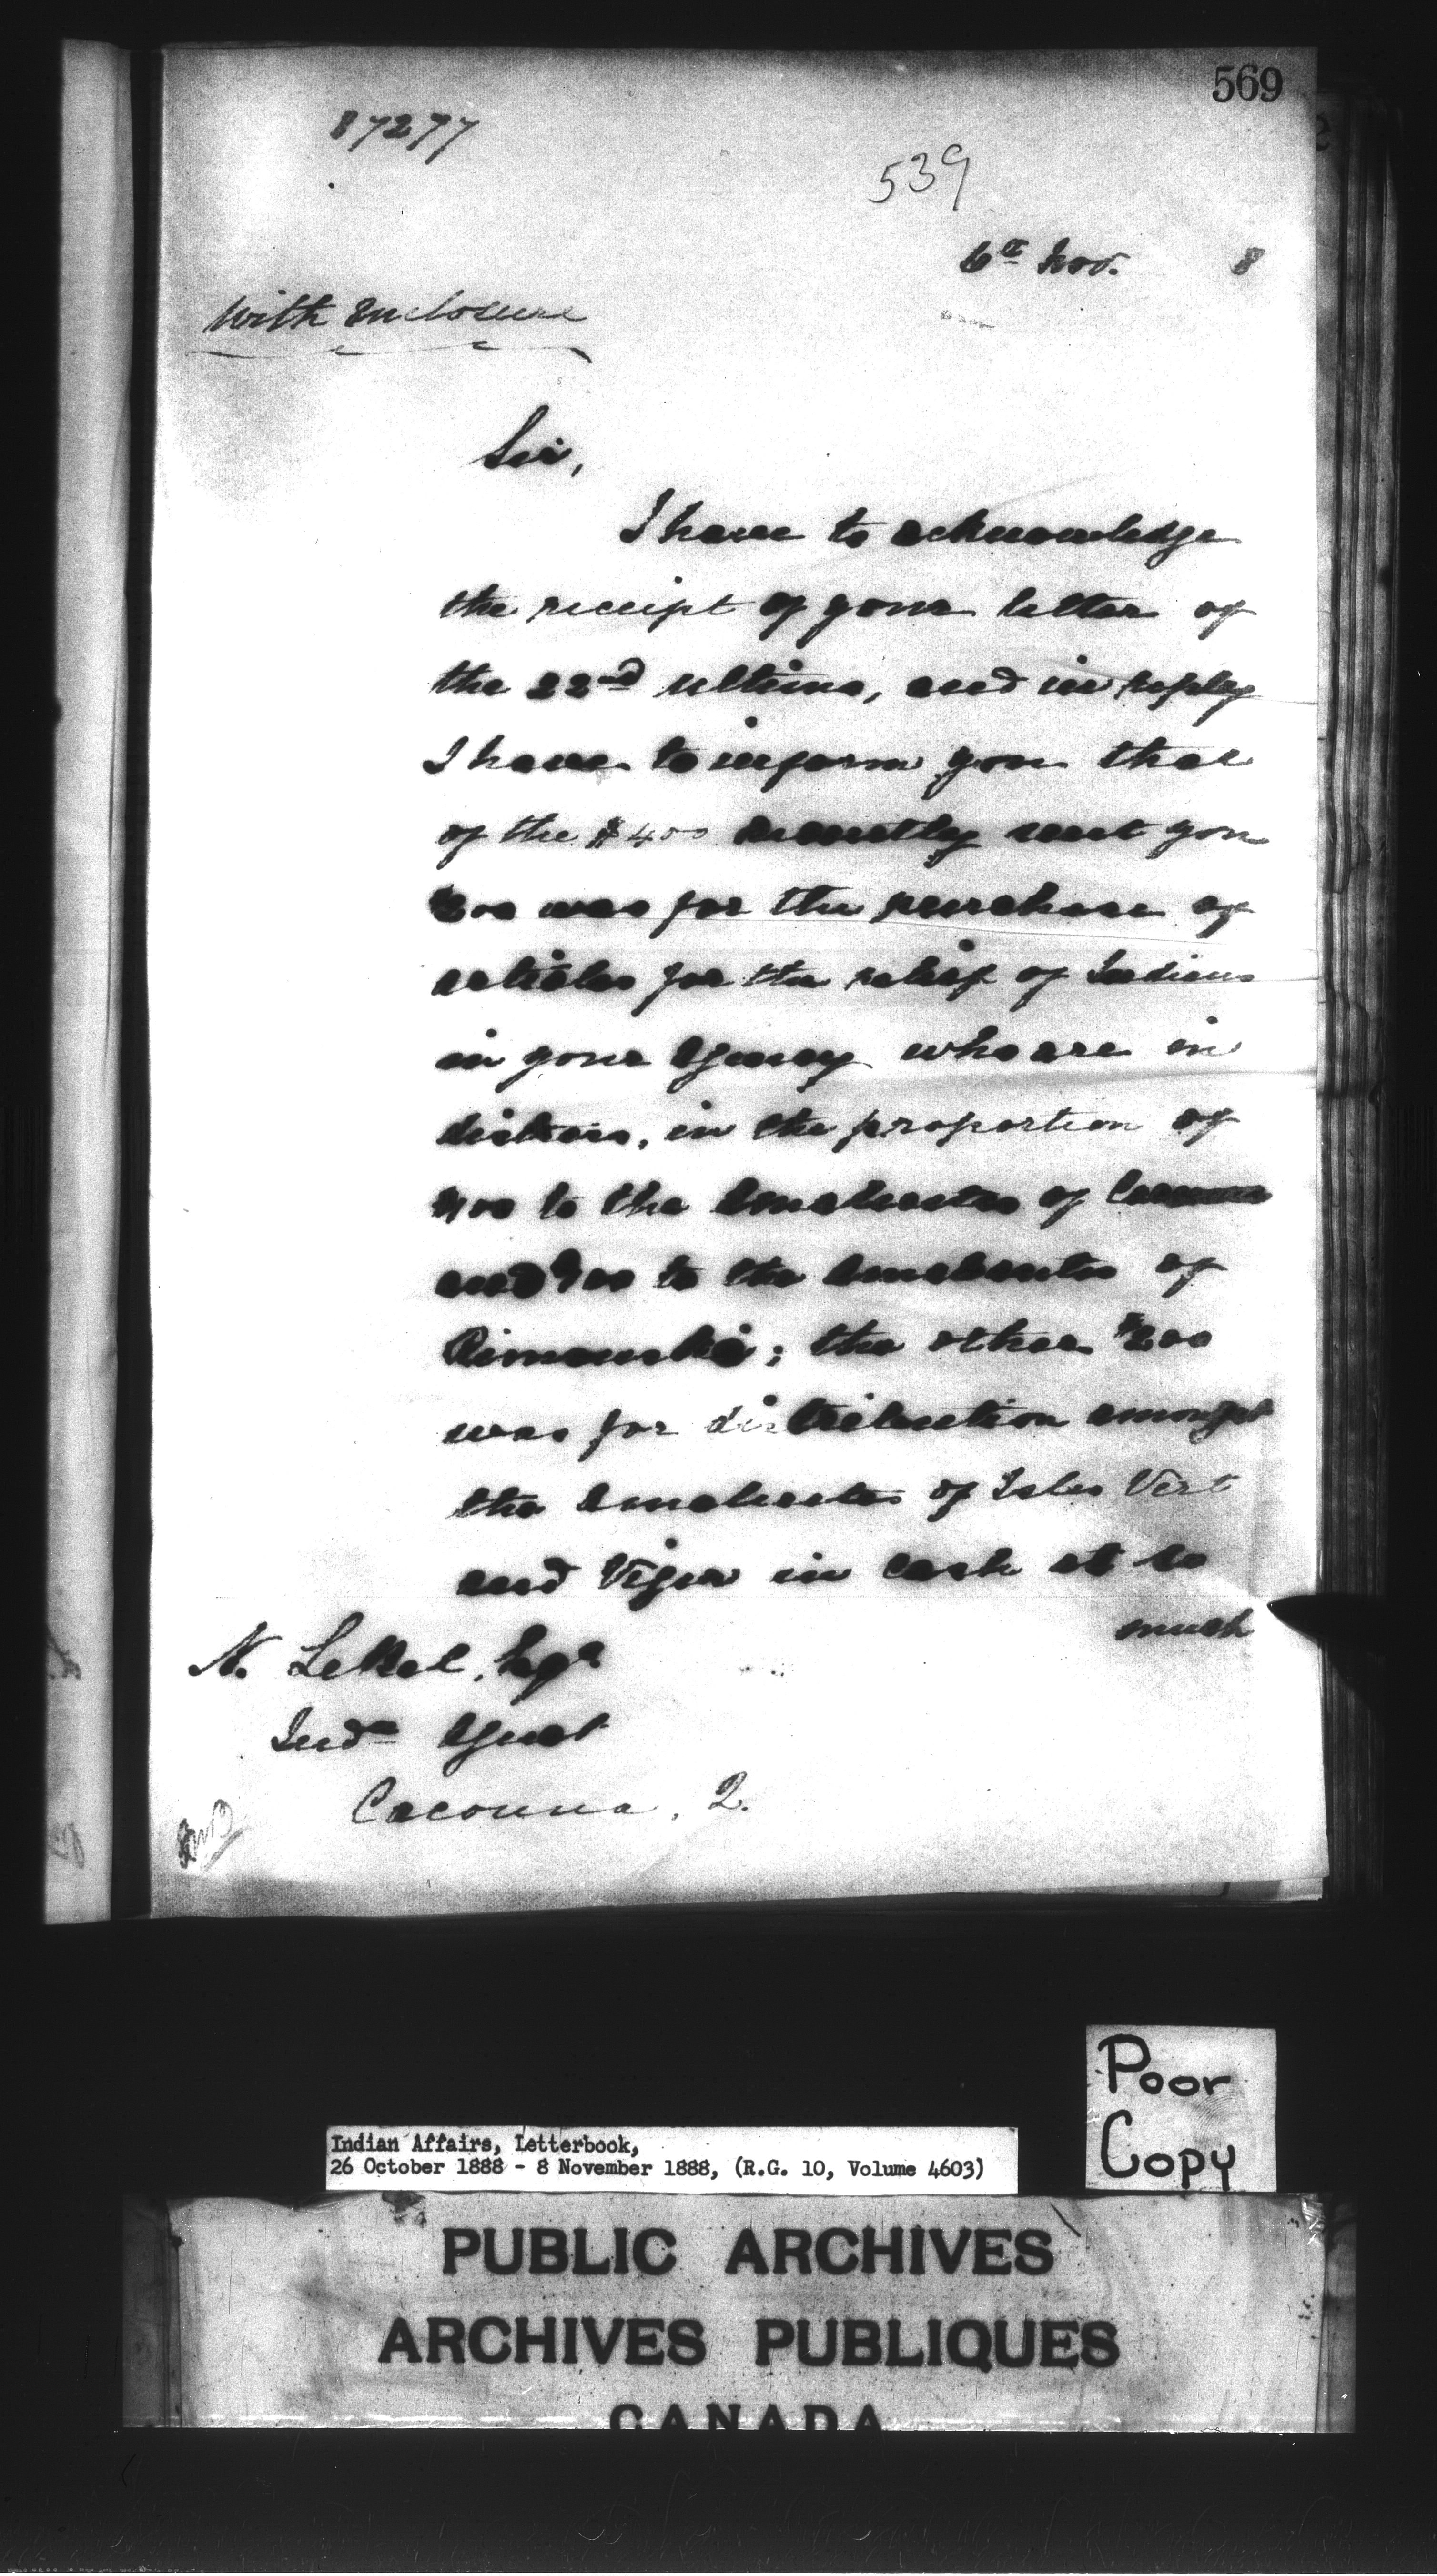 569
87277
539
6th Nov. 8
With Enclosure
Sir,
I have to acknowledge
the receipt of your letter of
the 22nd ultimo, and in reply
I have to inform you that
of the $400 recently sent you
$200 was for the purchase of
articles for the relief of Indians
in your Agency who are in
distress, in the proportion of
$100 to the Amalecites of Cacouna
and $100 to the Amalecites of
Rimouski; the other $200
was for distribution amongst
the Amalecites of Isles Vert
and Viger in cash at so
much
N. LeBel, Esqr
Indn Agent
Cacouna, Q.
Poor
Copy
Indian Affairs, Letterbook,
26 October 1888 - 8 November 1888, (R.G. 10, Volume 4603)
PUBLIC ARCHIVES
ARCHIVES PUBLIQUES
CANADA